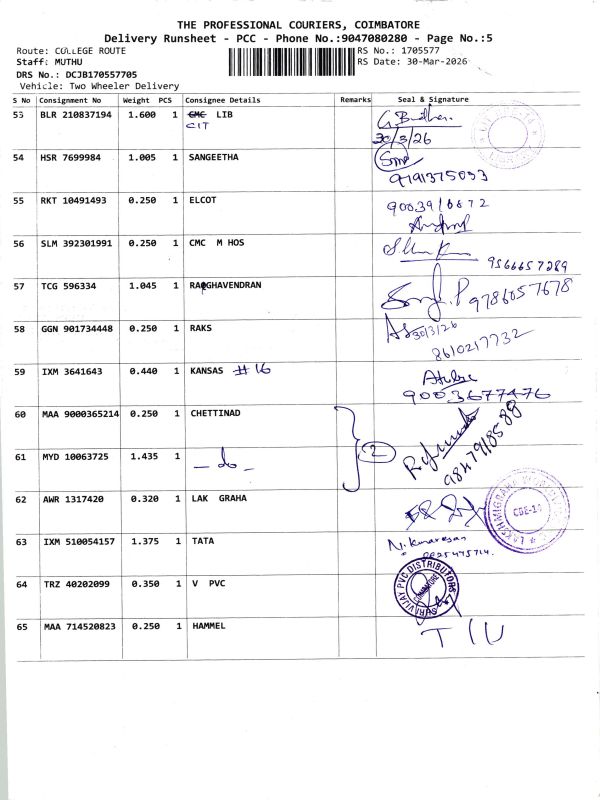 THE PROFESSIONAL COURIERS, COIMBATORE
Delivery Runsheet - PCC - Phone No.:9047080280 - Page No.:5
Route: COLLEGE ROUTE RS No.: 1705577
Staff: MUTHU RS Date: 30-Mar-2026
DRS No.: DCJB170557705
Vehicle: Two Wheeler Delivery
S No Consignment No Weight PCS Consignee Details Remarks Seal & Signature
53 BLR 210837194 1.600 1 CMC LIB
CIT
30/3/26
54 HSR 7699984 1.005 1 SANGEETHA
9791375093
55 RKT 10491493 0.250 1 ELCOT
56 SLM 392301991 0.250 1 CMC M HOS
9566657289
57 TCG 596334 1.045 1 RAGHAVENDRAN
9786057678
58 GGN 901734448 0.250 1 RAKS
30/3/26
8610217732
59 IXM 3641643 0.440 1 KANSAS #16
9003677476
60 MAA 9000365214 0.250 1 CHETTINAD
2
61 MYD 10063725 1.435 1 - do -
62 AWR 1317420 0.320 1 LAK GRAHA
CBE-14
63 IXM 510054157 1.375 1 TATA
N. Kumaresan
64 TRZ 40202099 0.350 1 V PVC
VIJAY PVC DISTRIBUTORS
COIMBATORE
65 MAA 714520823 0.250 1 HAMMEL